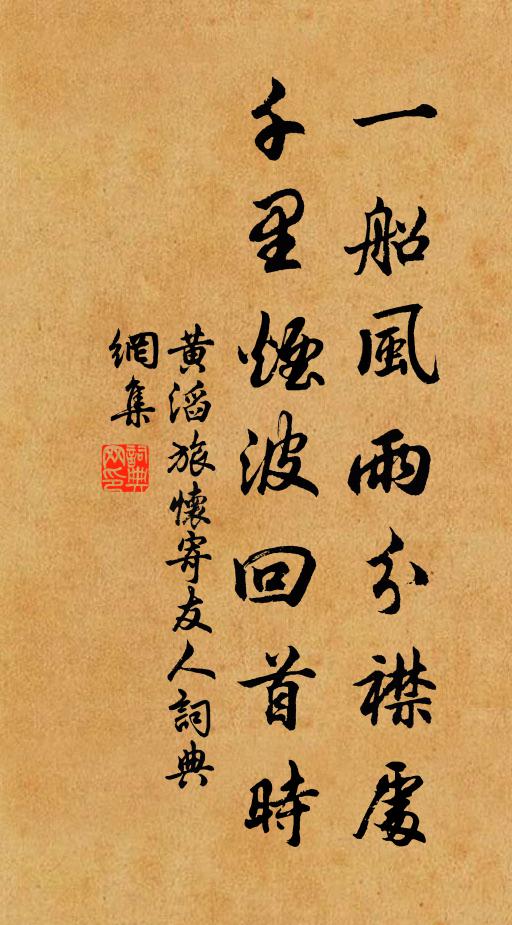 一船風雨分襟處
千里煙波回首時
黃滔旅懷寄友人詞典
網集
詞典
网印